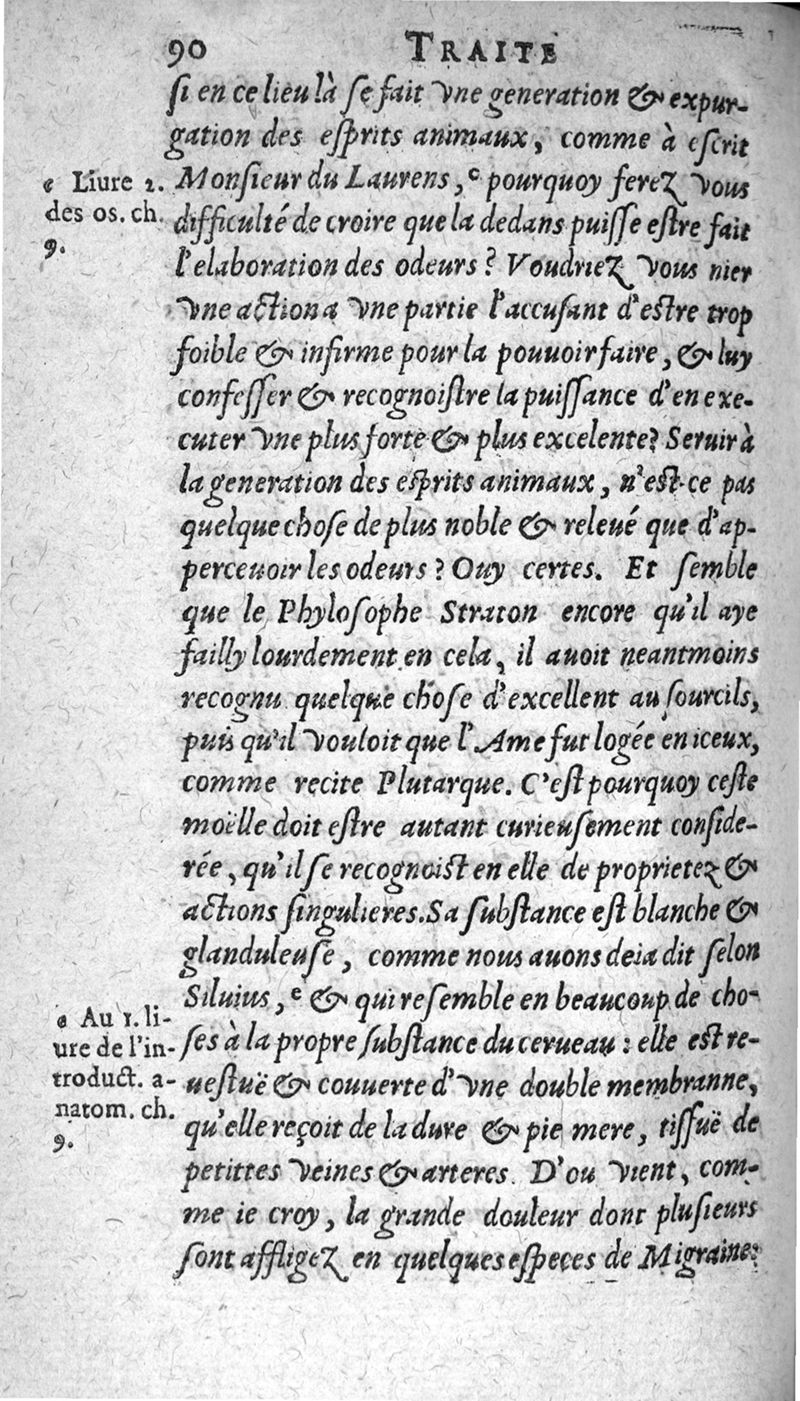 90 TRAITÉ
ſi en ce lieu là ſe fait vne generation & expur-
gation des eſprits animaux, comme à eſcrit
Monſieur du Laurens,ᶜ pourquoy ferez vous
difficulté de croire que la dedans puiſſe eſtre fait
l'elaboration des odeurs? Voudriez vous nier
vne action a vne partie l'accuſant d'eſtre trop
foible & infirme pour la pouuoir faire, & luy
confeſſer & recognoiſtre la puiſſance d'en exe-
cuter vne plus forte & plus excelente? Seruir à
la generation des eſprits animaux, n'eſt-ce pas
quelque choſe de plus noble & releué que d'ap-
perceuoir les odeurs? Ouy certes. Et ſemble
que le Phyloſophe Straton encore qu'il aye
failly lourdement en cela, il auoit neantmoins
recognu quelque choſe d'excellent au ſourcils,
puis qu'il vouloit que l'Ame fut logée en iceux,
comme recite Plutarque. C'eſt pourquoy ceſte
moëlle doit eſtre autant curieuſement conſide-
rée, qu'il ſe recognoiſt en elle de proprietez &
actions ſingulieres. Sa ſubſtance eſt blanche &
glanduleuſe, comme nous auons deia dit ſelon
Siluius,ᵉ & qui reſemble en beaucoup de cho-
ſes à la propre ſubſtance du cerueau: elle eſt re-
ueſtuë & couuerte d'vne double membranne,
qu'elle reçoit de la dure & pie mere, tiſſuë de
petittes veines & arteres. D'ou vient, com-
me ie croy, la grande douleur dont pluſieurs
ſont affligez en quelques eſpeces de Migraine:
c Liure 2.
des os. ch.
9.
e Au 1. li-
ure de l'in-
troduct. a-
natom. ch.
9.